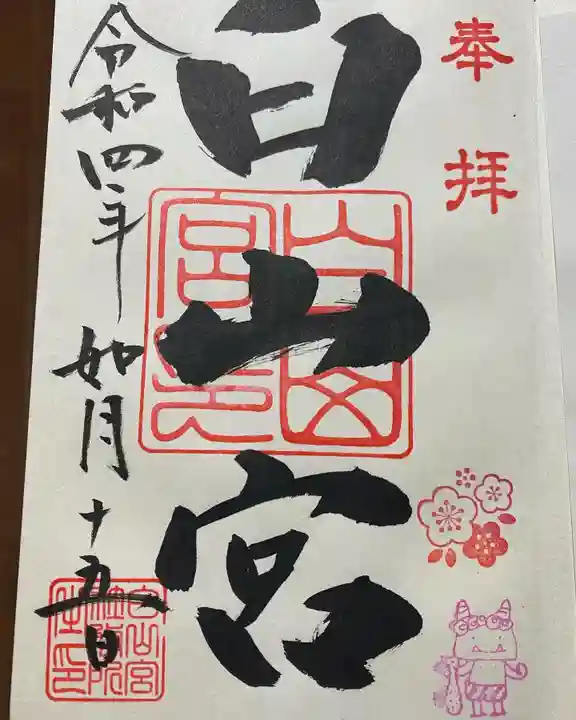 奉拝
白山宮
令和四年如月十五日
白山宮
社務所
之印